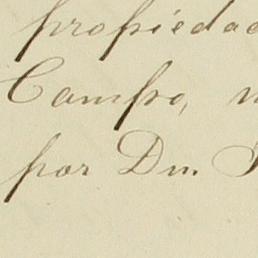 propiedad
Campo,
por Dn.